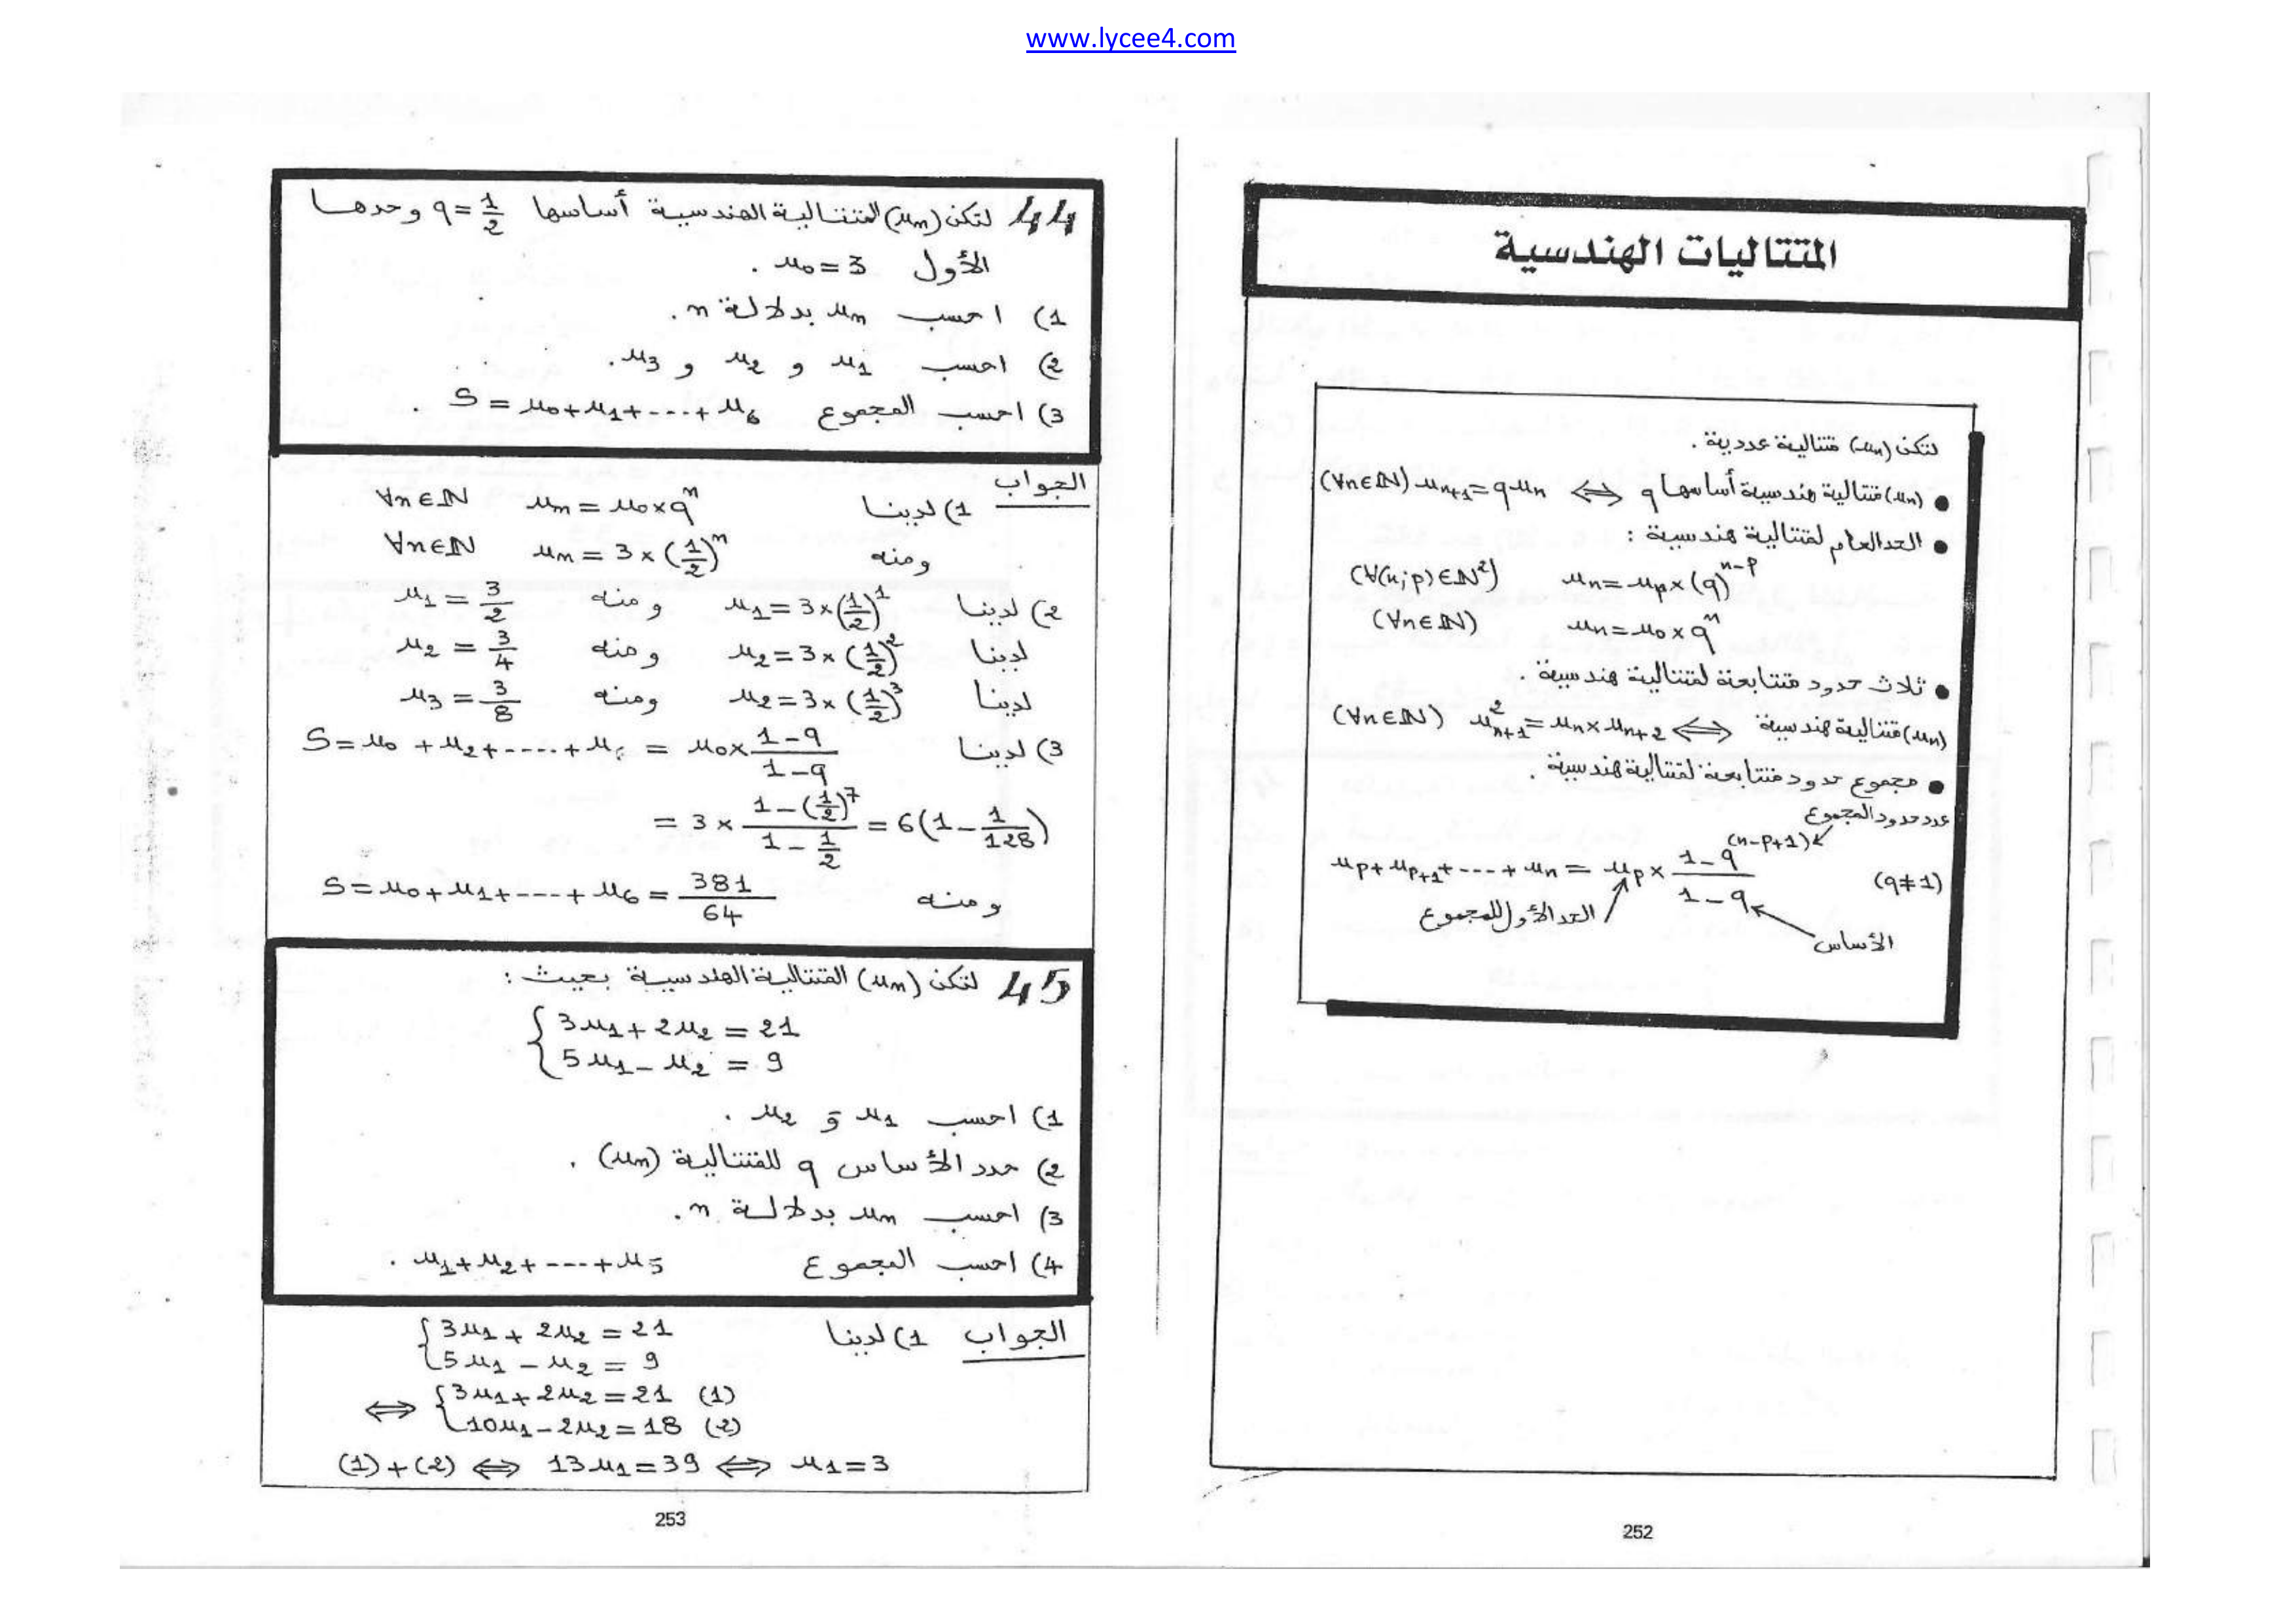 www.lycee4.com
المتتاليات الهندسية
لتكن (un) متتالية عددية .
● (un) متتالية هندسية أساسها q ⟺ (∀n∈ℕ) un+1 = q un
● الحد العام لمتتالية هندسية :
(∀(n;p)∈ℕ²) un = up × (q)^(n-p)
(∀n∈ℕ) un = u0 × q^n
● ثلاث حدود متتابعة لمتتالية هندسية .
(un) متتالية هندسية ⟺ u²n+1 = un × un+2 (∀n∈ℕ)
● مجموع حدود متتابعة لمتتالية هندسية .
عدد حدود المجموع
up + up+1 + ---- + un = up × (1-q^(n-p+1))/(1-q) (q≠1)
الحد الأول للمجموع
الأساس
252
44 لتكن (un) المتتالية الهندسية أساسها q = 1/2 وحدها
الأول u0 = 3 .
1) احسب un بدلالة n.
2) احسب u1 و u2 و u3.
3) احسب المجموع S = u0 + u1 + --- + u6 .
الجواب
1) لدينا un = u0 × q^n ∀n∈ℕ
ومنه un = 3 × (1/2)^n ∀n∈ℕ
2) لدينا u1 = 3 × (1/2)^1 ومنه u1 = 3/2
لدينا u2 = 3 × (1/2)^2 ومنه u2 = 3/4
لدينا u2 = 3 × (1/2)^3 ومنه u3 = 3/8
3) لدينا S = u0 + u2 + ----- + u6 = u0 × (1-q)/(1-q)
= 3 × (1-(1/2)^7)/(1-1/2) = 6(1 - 1/128)
ومنه S = u0 + u1 + ---- + u6 = 381/64
45 لتكن (un) المتتالية الهندسية بحيث :
{ 3u1 + 2u2 = 21
5u1 - u2 = 9
1) احسب u1 و u2 .
2) حدد الأساس q للمتتالية (un) .
3) احسب un بدلالة n.
4) احسب المجموع u1 + u2 + ---- + u5 .
الجواب 1) لدينا { 3u1 + 2u2 = 21
5u1 - u2 = 9
⟺ { 3u1 + 2u2 = 21 (1)
10u1 - 2u2 = 18 (2)
(1) + (2) ⟺ 13u1 = 39 ⟺ u1 = 3
253